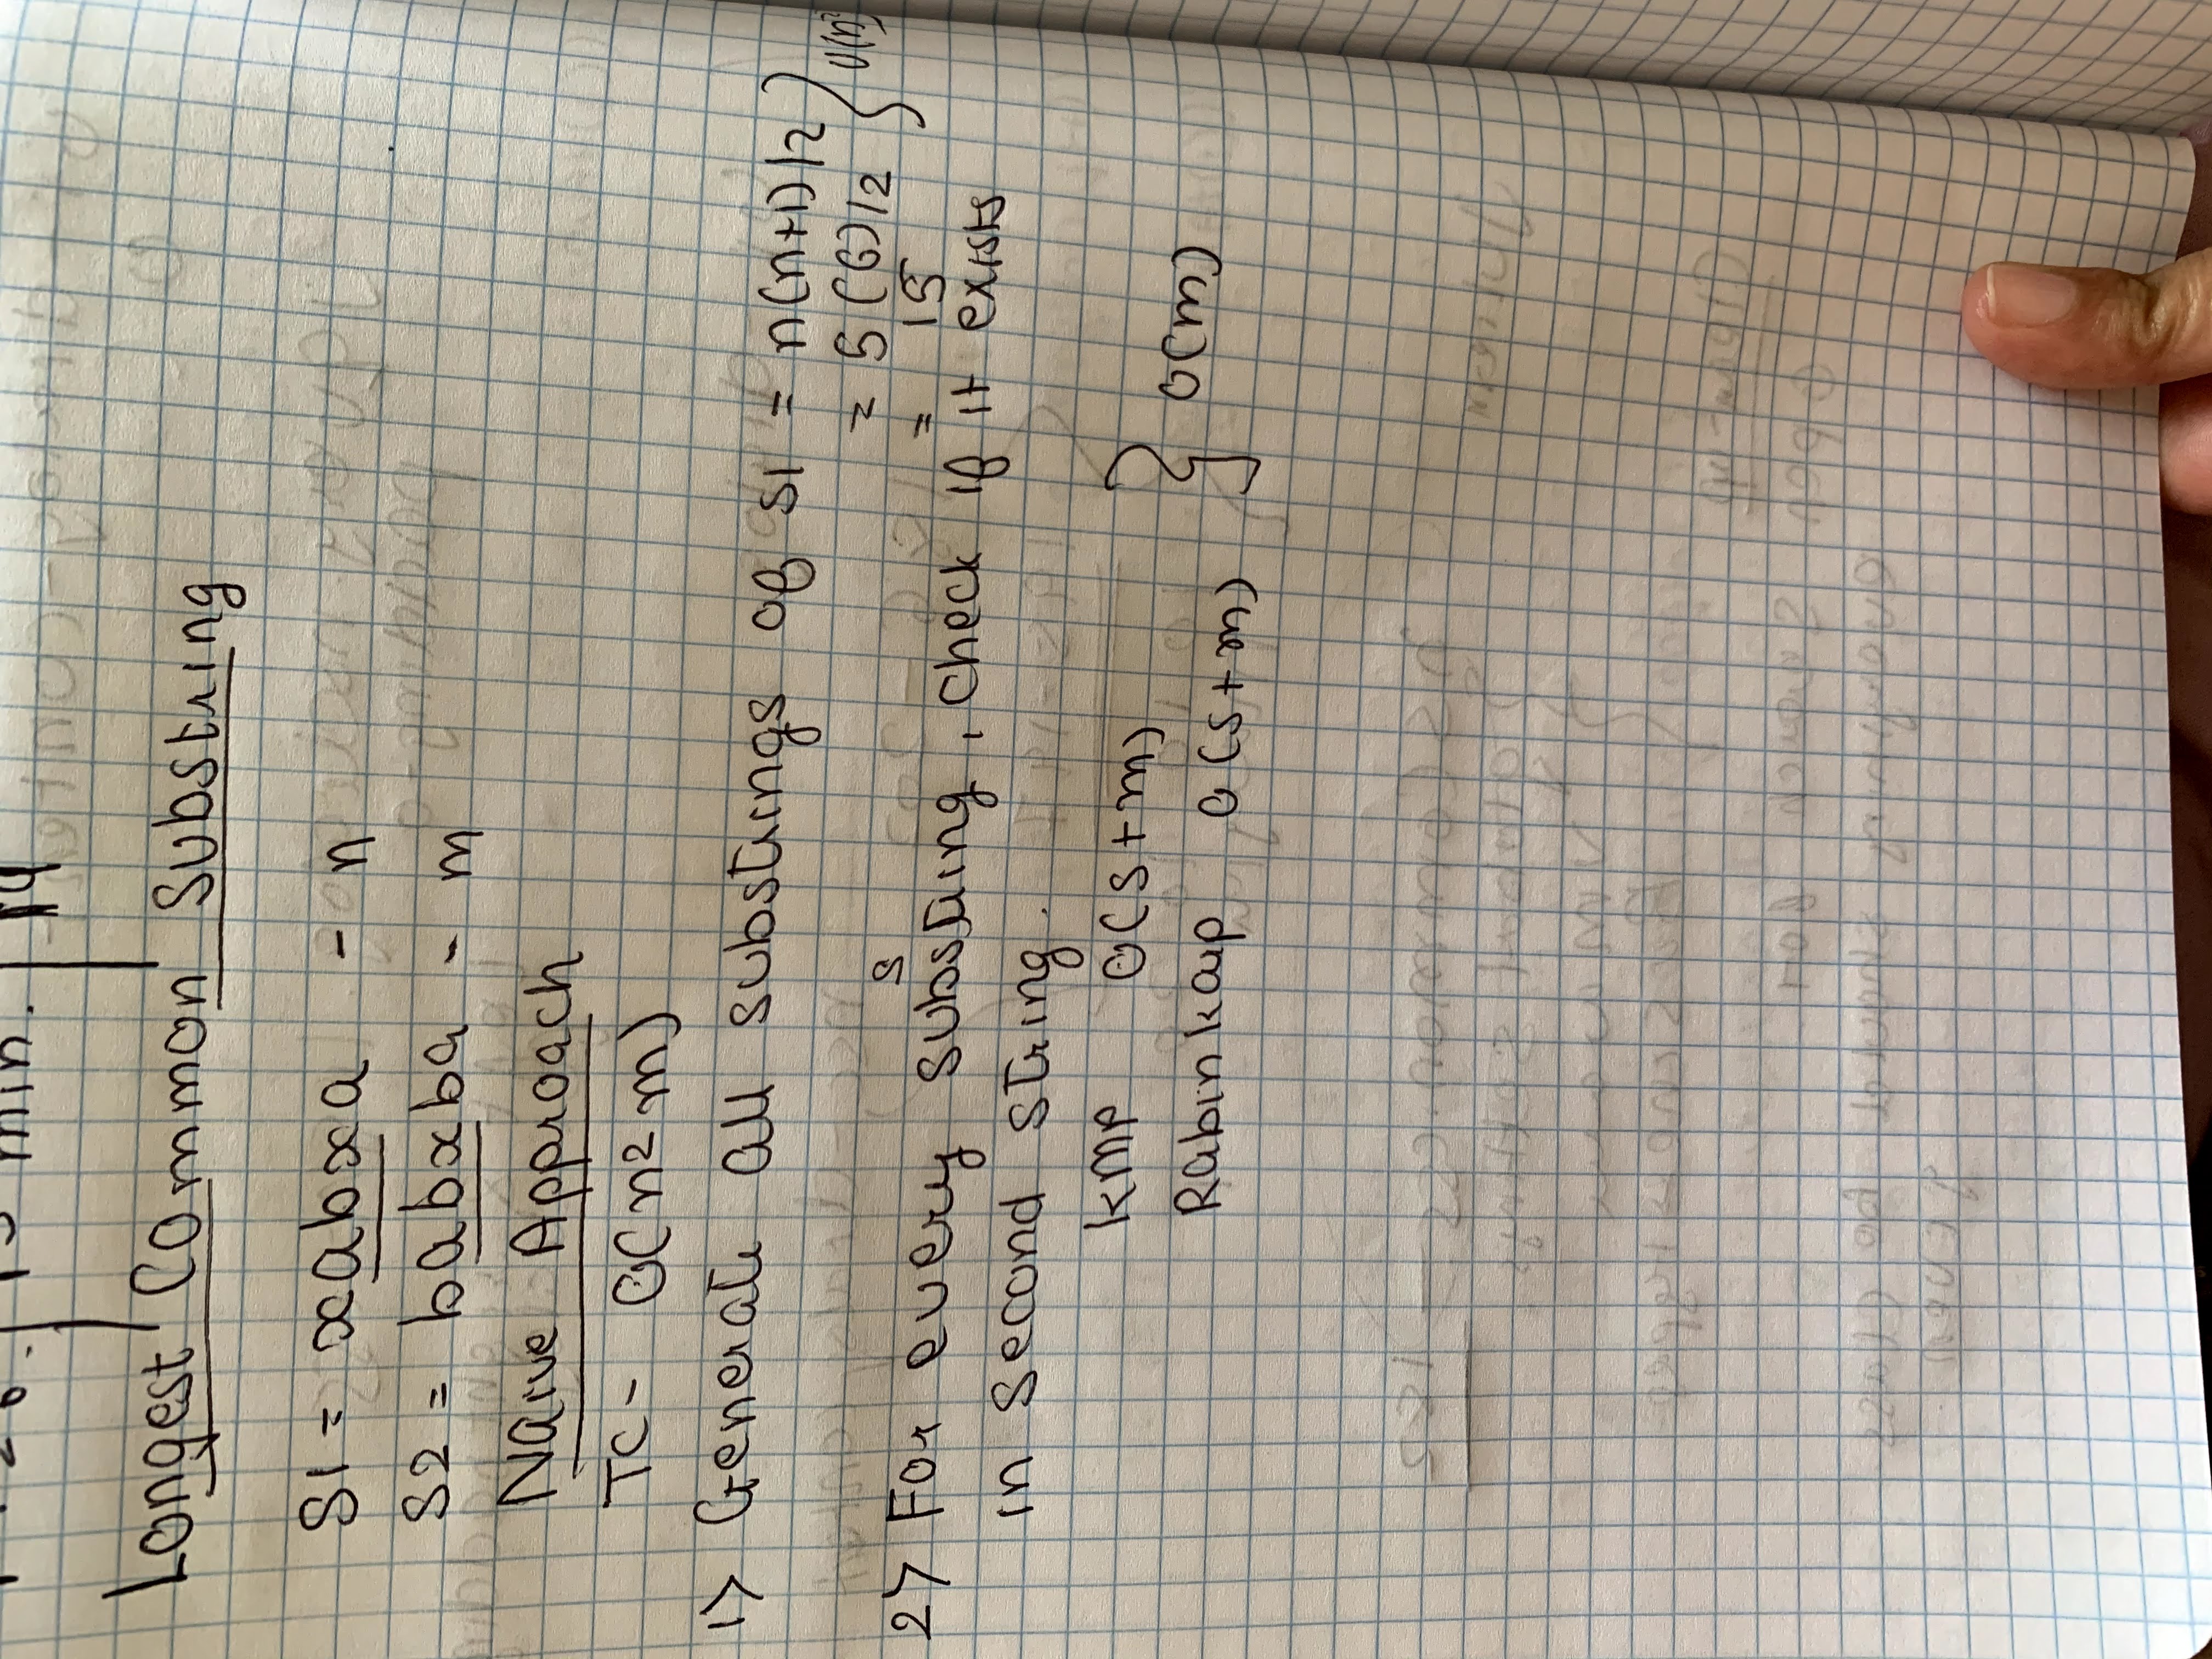 min.
Longest Common Substring
S1 = xabxa - n
S2 = babxba - m
Naive Approach
TC - O(n2 m)
1) Generate all substrings of S1 = n(n+1)/2
= 5(6)/2
= 15
s
2) For every substring, check if it exists
in second string.
KMP O(s+m)
Rabin karp O(s+m) } O(m)